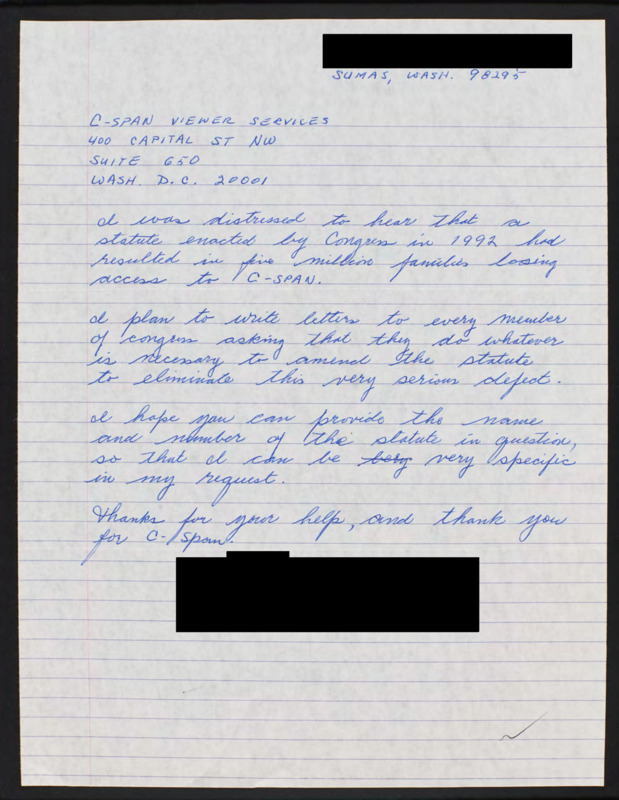 SUMAS, WASH. 98295
C-SPAN VIEWER SERVICES
400 CAPITAL ST NW
SUITE 650
WASH. D.C. 20001
I was distressed to hear that a
statute enacted by Congress in 1992 had
resulted in five million families loosing
access to C-SPAN.
I plan to write letters to every member
of congress asking that they do whatever
is necessary to amend the statute
to eliminate this very serious defect.
I hope you can provide the name
and number of the statute in question,
so that I can be very specific
in my request.
Thanks for your help, and thank you
for C-Span.